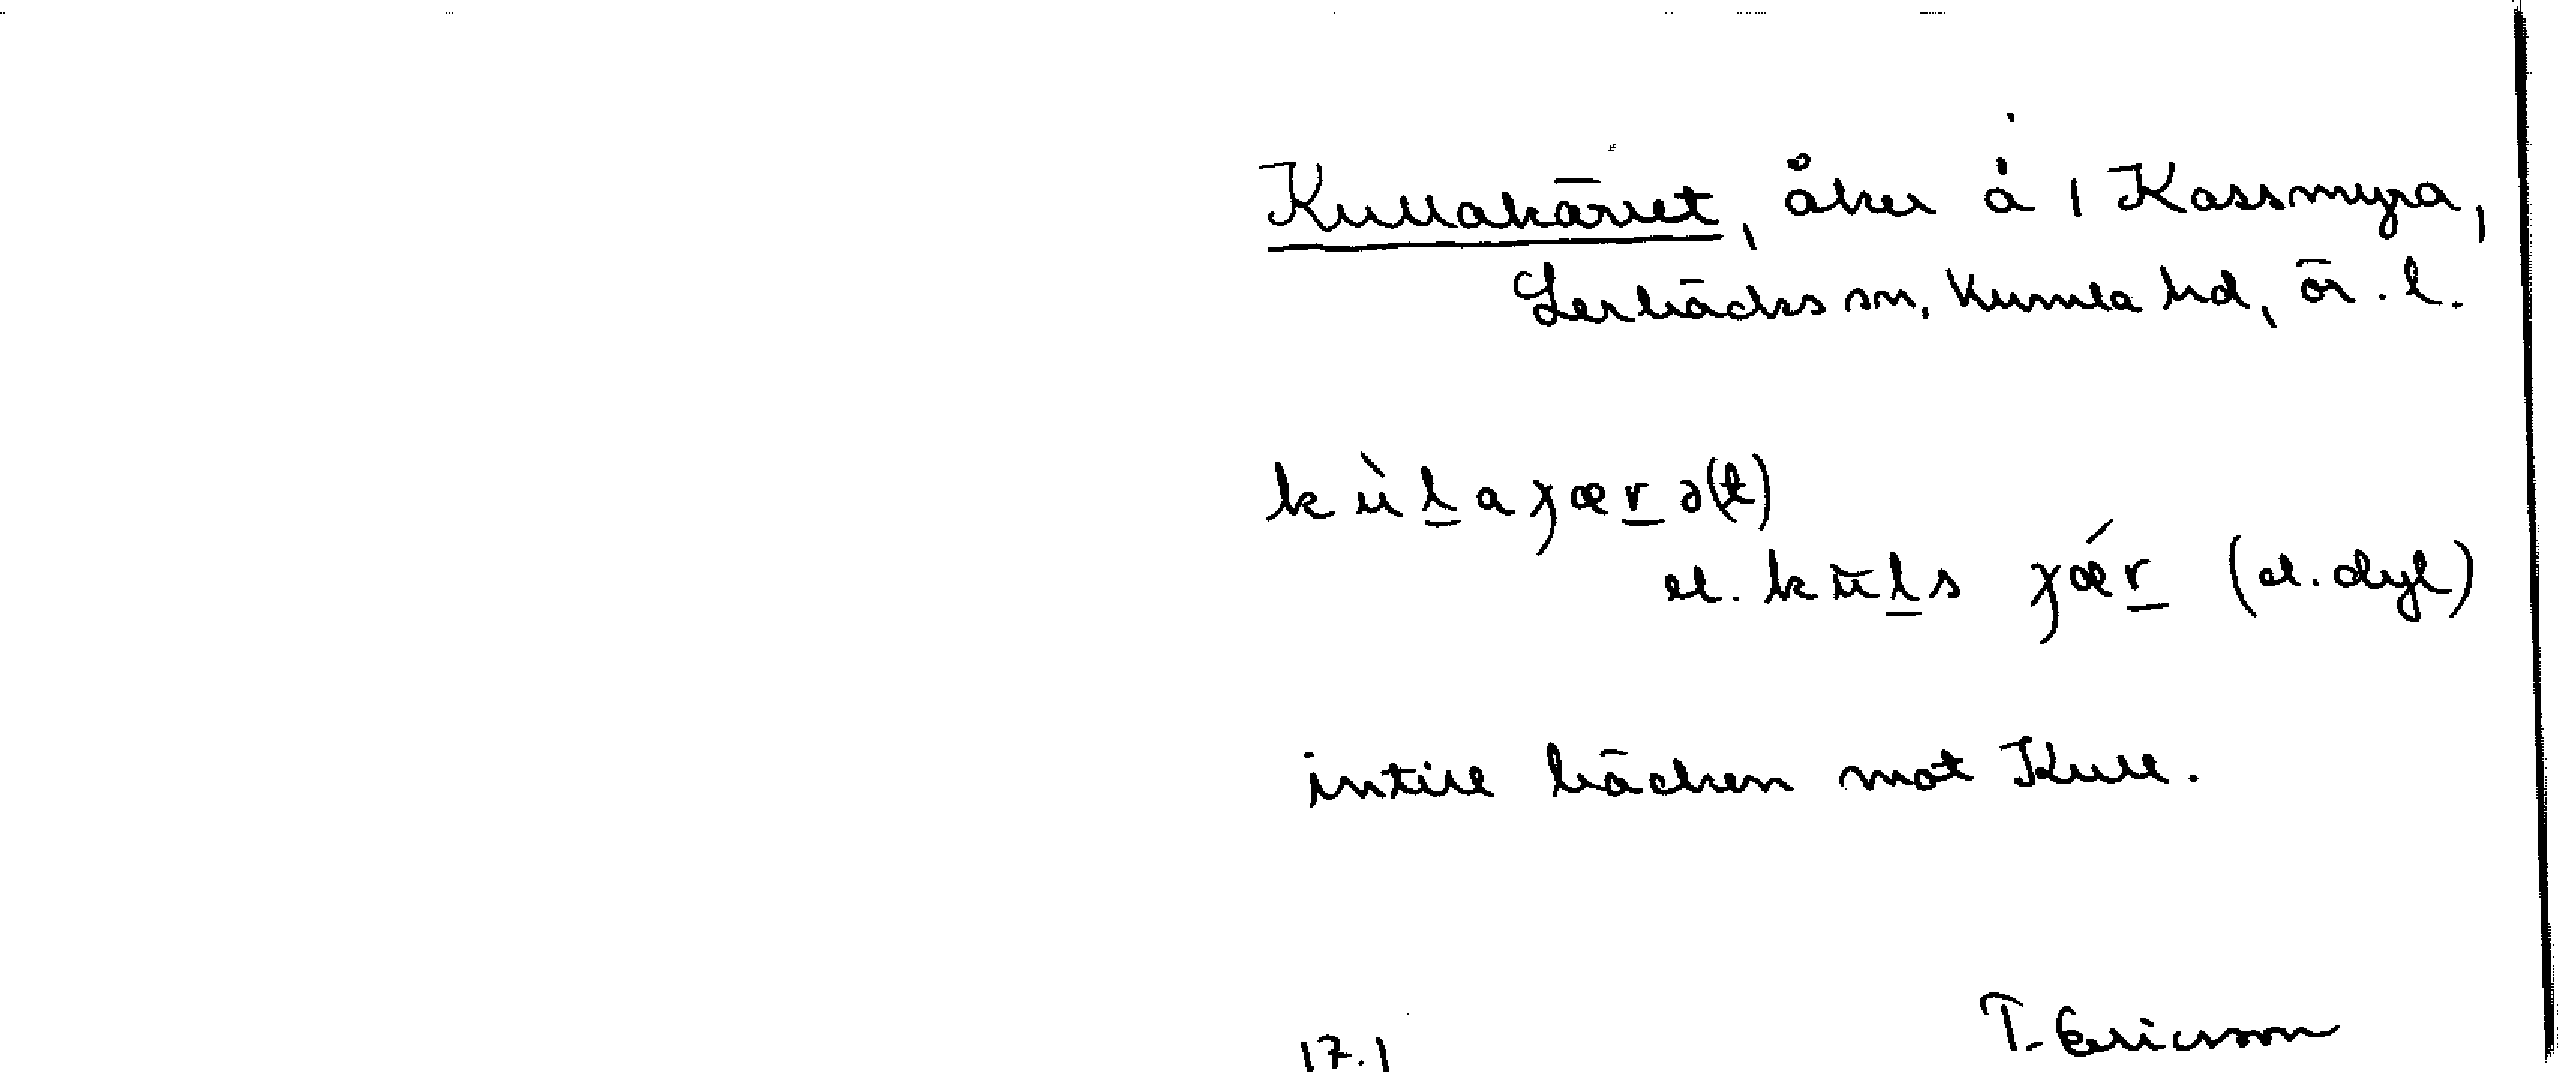 Kullakärret, åker å 1 Kassmyra,
Lerbäcks sn, Kumla hd, Ör. l.
kùlaχærə(t)
el. kūls χǽr (el. dyl)
intill bäcken mot Kull.
17.1 T. Ericsson